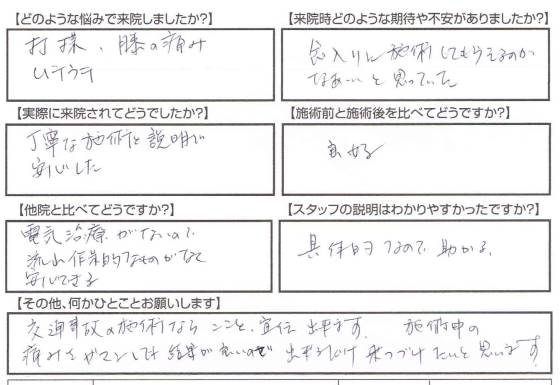 【どのような悩みで来院しましたか?】
打撲、膝の痛み
ムチウチ
【来院時どのような期待や不安がありましたか?】
念入りに施術してもらえるのか
なあーいと思っていた
【実際に来院されてどうでしたか?】
丁寧な施術と説明で
安心した
【施術前と施術後を比べてどうですか?】
良好
【他院と比べてどうですか?】
電気治療がないので
流れ作業的なものがなくて
安心できる
【スタッフの説明はわかりやすかったですか?】
具体的なので助かる。
【その他、何かひとことお願いします】
交通事故の施術ならここと、宣伝出来ます。 施術中の
痛みもガマンしても結果が良いので出来るだけ来つづけたいと思います